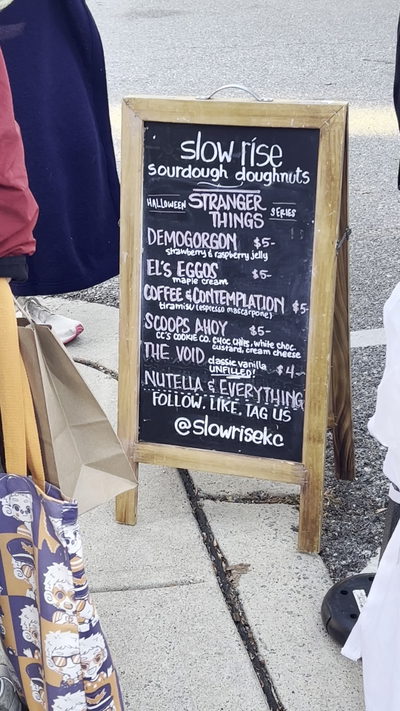 slow rise
sourdough doughnuts
HALLOWEEN STRANGER THINGS SERIES
DEMOGORGON $5-
strawberry & raspberry jelly
EL'S EGGOS $5-
maple cream
COFFEE & CONTEMPLATION $5-
tiramisu (espresso mascarpone)
SCOOPS AHOY $5-
CC'S COOKIE CO. CHOC CHIPS, white choc
custard, cream cheese
THE VOID classic vanilla $4-
UNFILLED!
NUTELLA & EVERYTHING
FOLLOW. LIKE. TAG US
@slowrisekc